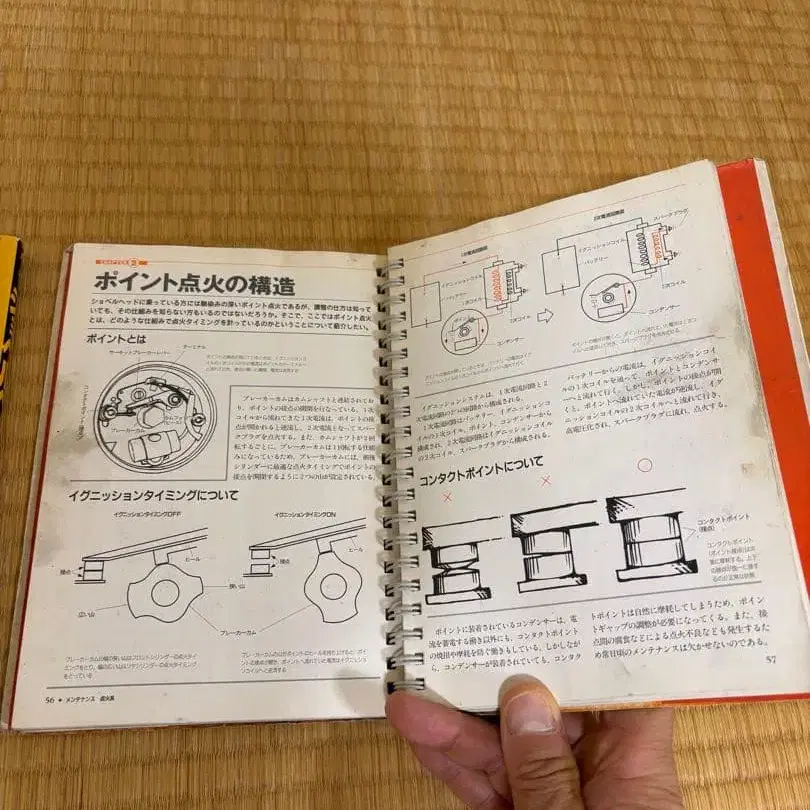 CHAPTER
ポイント点火の構造
ショベルヘッドに乗っている方には馴染みの深いポイント点火であるが、調整の仕方は知って
いても、その仕組みを知らない方もいるのではないだろうか。そこで、ここではポイント点火
とは、どのような仕組みで点火タイミングを計っているのかということについて紹介したい。
ポイントとは
ターミナル
サーキットブレーカーレバー
ブレーカーカム
ブレーカーカムはカムシャフトと連結されてお
り、ポイントの接点の開閉を行なっている。1次
コイルから流れてきた1次電流は、ポイントの接
点が開かれると逆流し、2次電流となってスパー
クプラグを点火する。また、カムシャフトが2回
転するごとに、ブレーカーカムは1回転する仕組
みになっているため、ブレーカーカムには、前後
シリンダーに最適な点火タイミングでポイントの
接点を開閉するように2つの山が設定されている。
イグニッションタイミングについて
イグニッションタイミングOFF
イグニッションタイミングON
ヒール
ヒール
接点
接点
狭い山
広い山
ブレーカーカム
ブレーカーカムの幅の狭い山はフロントシリンダーの点火タイ
ミングをとり、幅の広い山はリヤシリンダーの点火タイミング
をとっている
56 ● メンテナンス 点火系
1次電流回路図
イグニッションコイル
バッテリー
1次コイル
2次コイル
コンデンサー
2次電流回路図
スパークプラグ
イグニッションコイル
バッテリー
1次コイル
コンデンサー
イグニッションシステムは、1次電流回路と2
次電流回路の2つの回路から構成される。
1次電流回路はバッテリー、イグニッションコ
イルの1次コイル、ポイント、コンデンサーから
構成され、2次電流回路はイグニッションコイル
の2次コイル、スパークプラグから構成される。
バッテリーからの電流は、イグニッションコイ
ルの1次コイルを通って、ポイントとコンデンサ
ーへと流れて行く。しかし、ポイントの接点が開
くと、ポイントへ流れていた電流が逆流し、イグ
ニッションコイルの2次コイルへと流れて行き、
高電圧化され、スパークプラグに流れ、点火する。
コンタクトポイントについて
コンタクトポイント
(接点)
コンタクトポイント
ポイントに装着されているコンデンサーは、電
流を蓄電する働き以外にも、コンタクトポイント
の焼損や摩耗を防ぐ働きもしている。しかしなが
ら、コンデンサーが装着されていても、コンタク
トポイントは自然に摩耗してしまうため、ポイン
トギャップの調整が必要になってくる。また、接
点間の腐食などによる点火不良なども発生するた
め常日頃のメンテナンスは欠かせないのである。
57